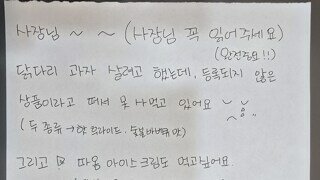 사장님 ~ ~ (사장님 꼭 읽어주세요)
(완전중요!!)
닭다리 과자 살려고 했는데, 등록되지 않은
상품이라고 떠서 못 사먹고 있어요
(두 종류 → 핫 후라이드, 숯불바베큐 맛)
그리고 따옴 아이스크림도 먹고싶어요.